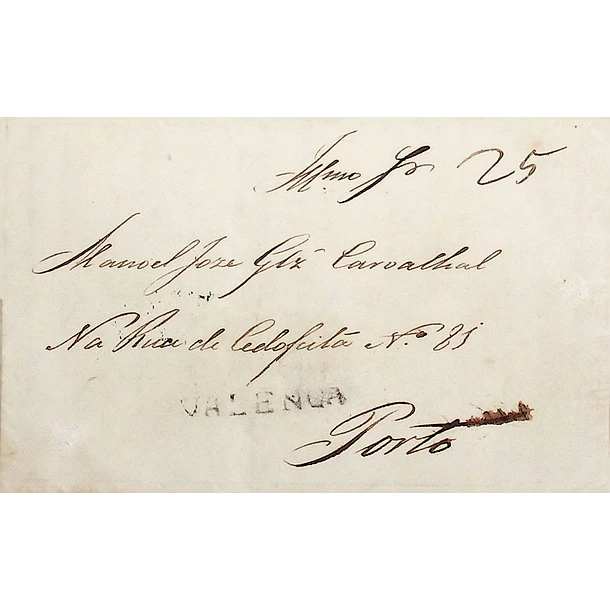 Illmo Sr 25
Manoel Joze Glz Carvalhal
Na Rua de Cedofeita No 81
VALENÇA
Porto